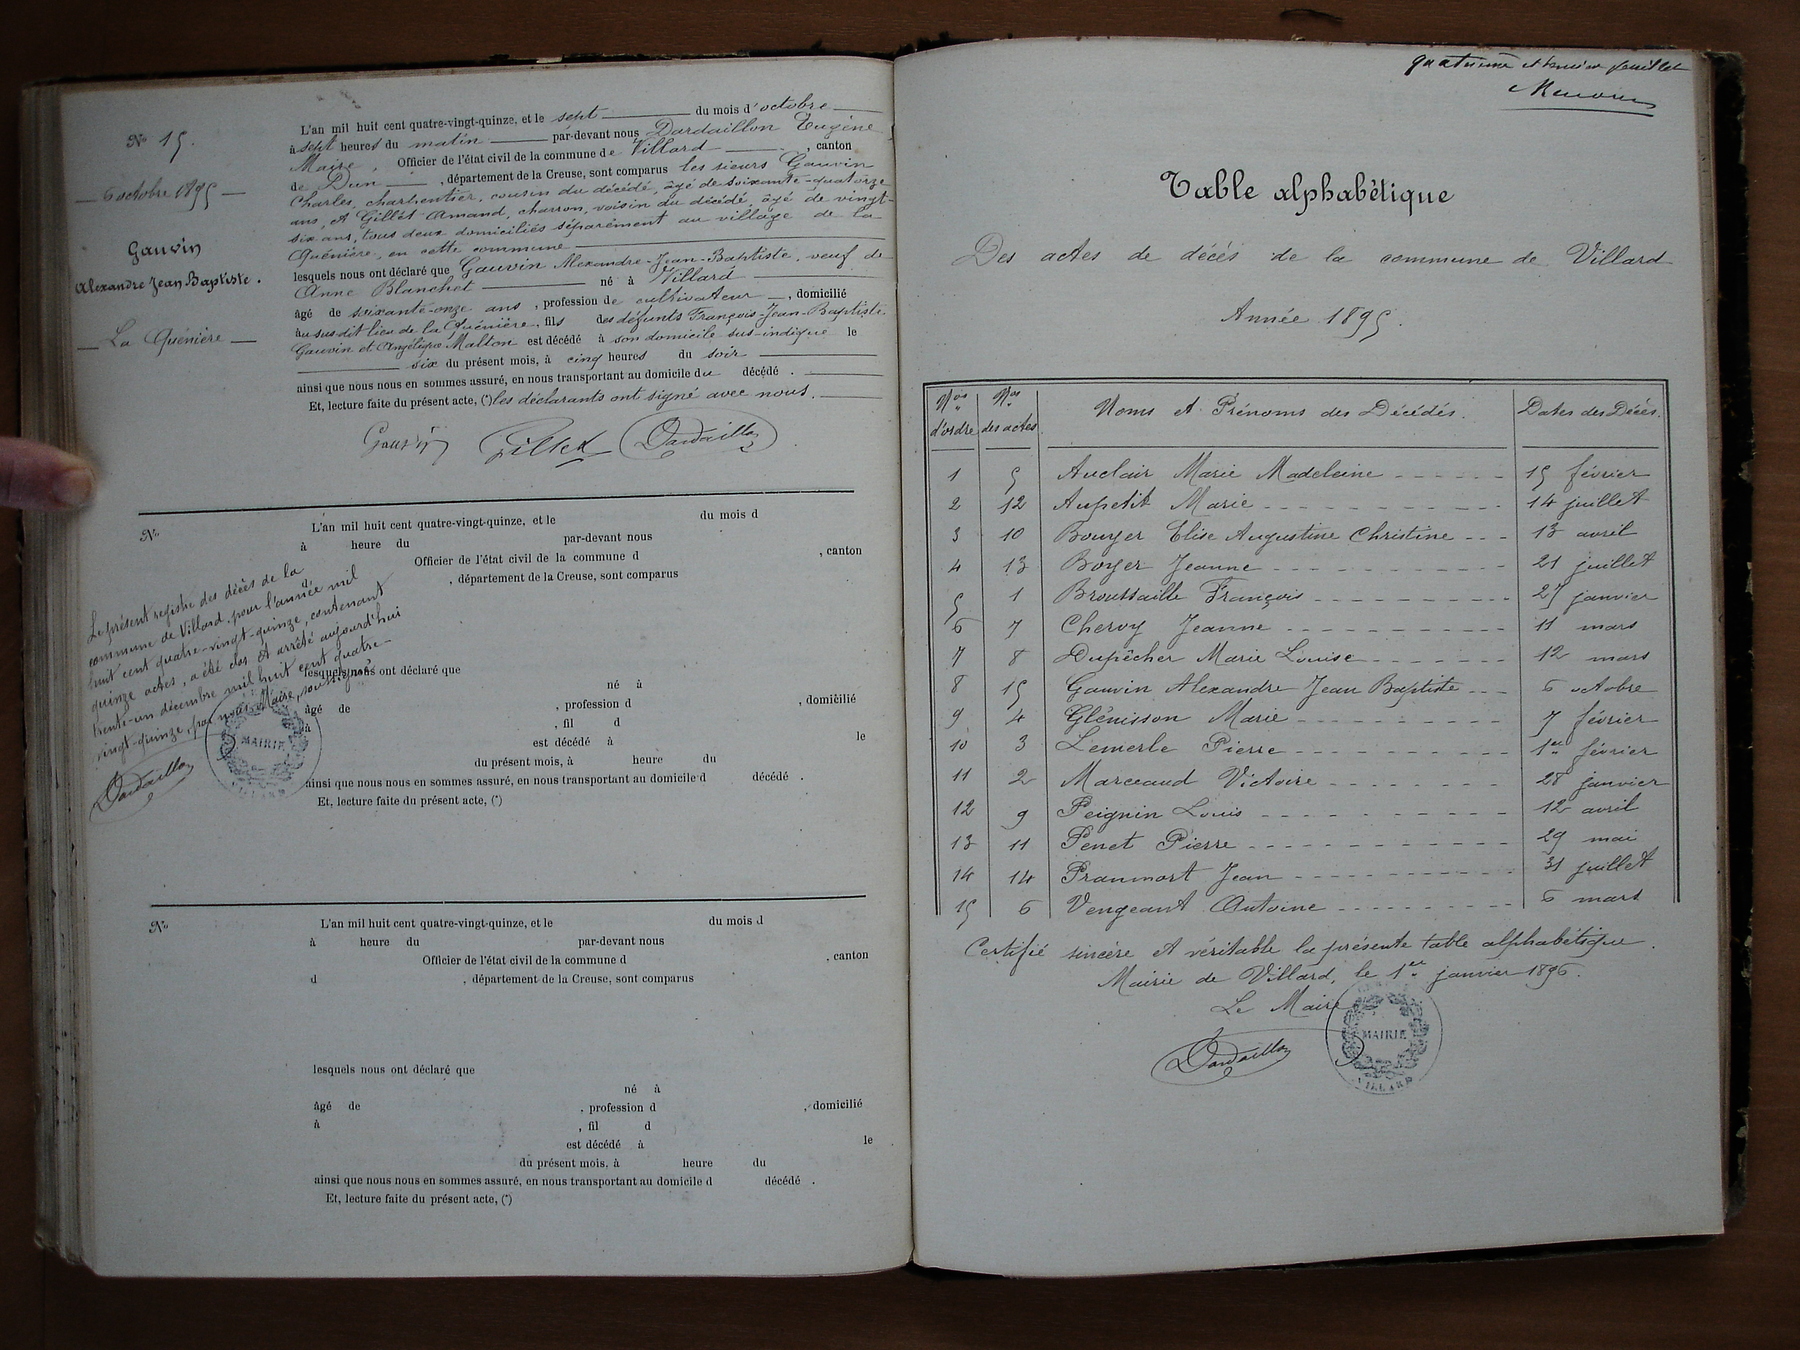 No 15.
6 octobre 1895
Gauvin
Alexandre Jean Baptiste.
La Quénière
L'an mil huit cent quatre-vingt-quinze, et le sept du mois d'octobre
à sept heures du matin par-devant nous Dardaillon Eugène
Maire Officier de l'état civil de la commune de Villard, canton
de Dun, département de la Creuse, sont comparus les sieurs Gauvin
Charles, charpentier, cousin du décédé, âgé de soixante-quatorze
ans, et Gillet Amand, charron, voisin du décédé, âgé de vingt-
six ans, tous deux domiciliés séparément au village de la
Quénière, en cette commune
lesquels nous ont déclaré que Gauvin Alexandre-Jean-Baptiste, veuf de
Anne Blanchet né à Villard
âgé de soixante-onze ans, profession de cultivateur, domicilié
au susdit lieu de la Quénière, fils des défunts François-Jean-Baptiste
Gauvin et Angélique Malton est décédé à son domicile sus-indiqué le
six du présent mois, à cinq heures du soir
ainsi que nous nous en sommes assuré, en nous transportant au domicile du décédé.
Et, lecture faite du présent acte, (*) les déclarants ont signé avec nous.
Gauvin Gillet Dardaillon
No
L'an mil huit cent quatre-vingt-quinze, et le du mois d
à heure du par-devant nous
Officier de l'état civil de la commune d , canton
, département de la Creuse, sont comparus
lesquels nous ont déclaré que
né à
âgé de , profession d , domicilié
à , fil d
est décédé à le
du présent mois, à heure du
ainsi que nous nous en sommes assuré, en nous transportant au domicile d décédé .
Et, lecture faite du présent acte, (*)
Le présent registre des décès de la
commune de Villard, pour l'année mil
huit cent quatre-vingt-quinze, contenant
quinze actes, a été clos et arrêté aujourd'hui
trente-un décembre mil huit cent quatre-
vingt-quinze, par nous, Maire, soussigné
Dardaillon
MAIRIE
VILLARD
No
L'an mil huit cent quatre-vingt-quinze, et le du mois d
à heure du par-devant nous
Officier de l'état civil de la commune d , canton
d , département de la Creuse, sont comparus
lesquels nous ont déclaré que
né à
âgé de , profession d , domicilié
à , fil d
est décédé à le
du présent mois, à heure du
ainsi que nous nous en sommes assuré, en nous transportant au domicile d décédé .
Et, lecture faite du présent acte, (*)
quatrième et dernier feuillet
Table alphabétique
Des actes de décés de la commune de Villard
Année 1895.
Nos d'ordre Nos des actes Noms et Prénoms des Décédés. Dates des Décès.
1 5 Auclair Marie Madeleine 15 février
2 12 Aupetit Marie 14 juillet
3 10 Bouyer Elise Augustine Christine 13 avril
4 13 Boyer Jeanne 21 juillet
5 1 Broussaille François 25 janvier
6 7 Chervy Jeanne 11 mars
7 8 Dupêcher Marie Louise 12 mars
8 15 Gauvin Alexandre Jean Baptiste 6 octobre
9 4 Glénisson Marie 7 février
10 3 Lemerle Pierre 1er février
11 2 Marceaud Victoire 28 janvier
12 9 Peignin Louis 12 avril
13 11 Penet Pierre 29 mai
14 14 Pranmort Jean 31 juillet
15 6 Vengeant Antoine 6 mars
Certifié sincère et véritable la présente table alphabétique.
Mairie de Villard, le 1er janvier 1896.
Le Maire
Dardaillon
MAIRIE
VILLARD